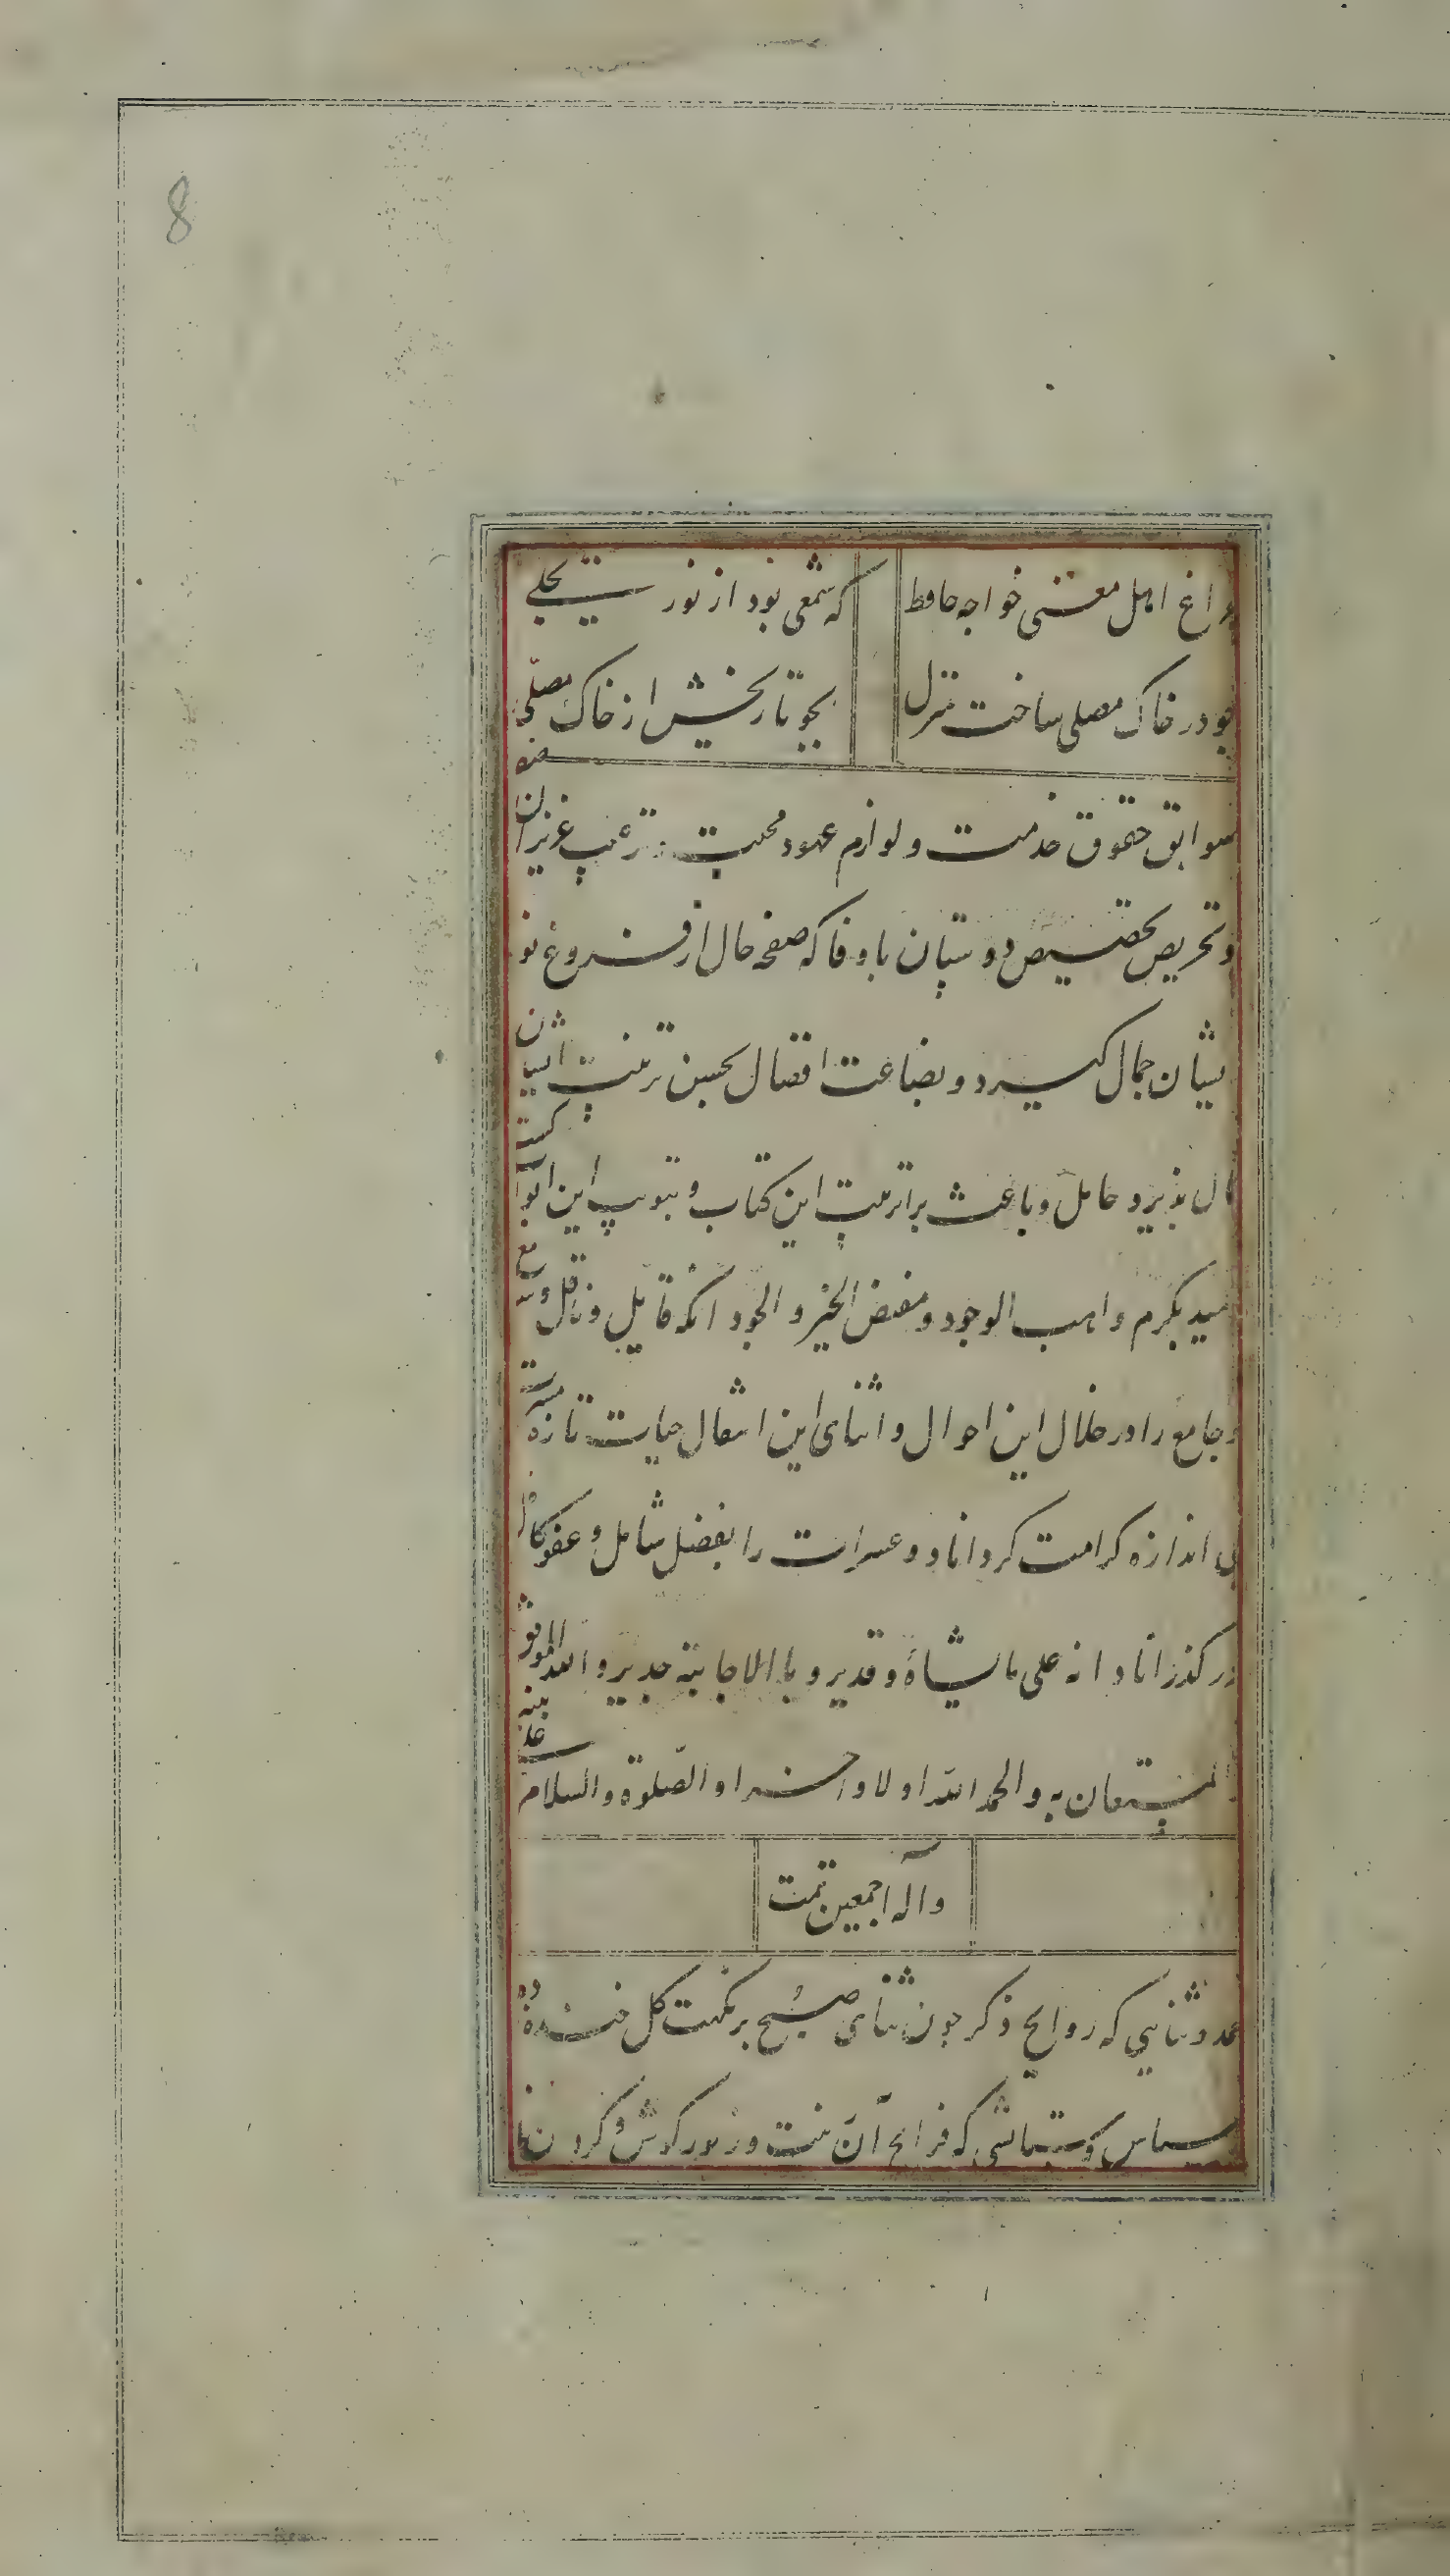 8
چراغ اهل معنی خواجه حافظ که شمعی بود از نور تجلی
چو در خاک مصلی ساخت منزل بجو تاریخش از خاک مصلی
سوابق حقوق خدمت و لوازم عهود محبت و ترغیب عزیزان
و تحریص تحضیص دوستان باوفا که صفحه حال از فروغ نو
یشان جمال گیرد و بضاعت افضال بحسن تربیت ایشان
مال پذیرد حامل و باعث بر ترتیب این کتاب و تبویب این ابوا
مید بکرم واهب الوجود و مفیض الخیر و الجود انکه قایل و ناقل و
و جامع را در خلال این احوال و اثنای این اشغال حیات تازه
بی اندازه کرامت کرداناد و عثرات را بفضل شامل و عفو
در کذراناد انه علی ما یشاء و قدیر و با الاجابته جدیر و الله الموفق
المستعان به و الحمد الله اولا و اخرا و الصلوة و السلام
و اله اجمعین تمت
حمد و ثنایی که روایح ذکر چون ثنای صبح بر نکهت کل خنده
سپاس و ستایشی که فرایح آن منت و زیور کوش و کردن